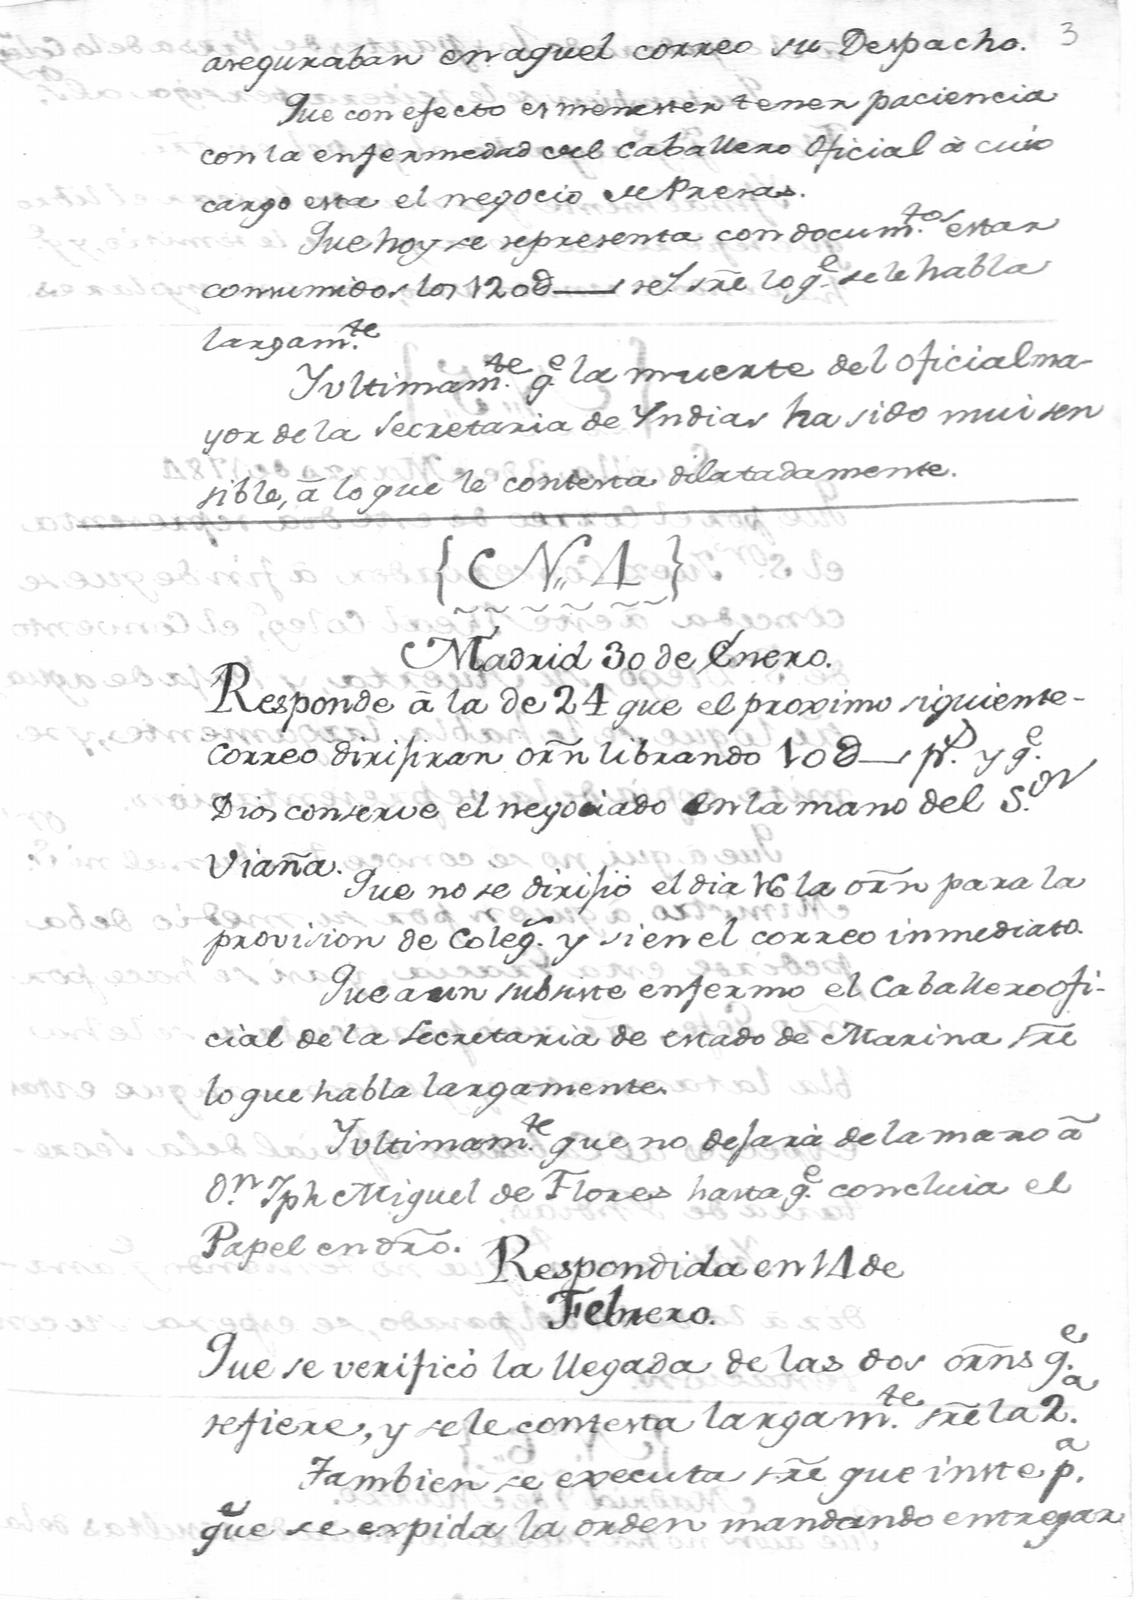 3
aseguraban en aquel correo su Despacho.
Que con efecto es menester tener paciencia
con la enfermedad del Caballero Oficial â cuio
cargo esta el negocio de Presas.
Que hoy se representa con docum.tos estar
consumidos los 120d sre lo q.e se le habla
largam.te
Y ultimam.te q.e la muerte del oficial ma-
yor de la Secretaria de Yndias ha sido mui sen
sible, â lo que le contesta dilatadamente.
{ N. 4 }
Madrid 30 de Enero.
Responde â la de 24 que el proximo siguiente-
correo dirijiran orñ librando 10d y q.e
Dios conserve el negociado en la mano del S.or
Viaña.
Que no se dirijió el dia 16 la orñ para la
provision de Coleg.s y si en el correo inmediato.
Que aun subsiste enfermo el Caballero ofi-
cial de la Secretaria de estado de Marina sre
lo que habla largamente.
Y ultimam.te que no dejarà de la mano â
Dn Jph Miguel de Flores hasta q.e concluia el
Papel en dro.
Respondida en 14 de
Febrero.
Que se verificò la llegada de las dos orñs q.e
refiere, y se le contesta largam.te sre la 2.a
Tambien se executa sre que inste p.a
que se expida la orden mandando entregar